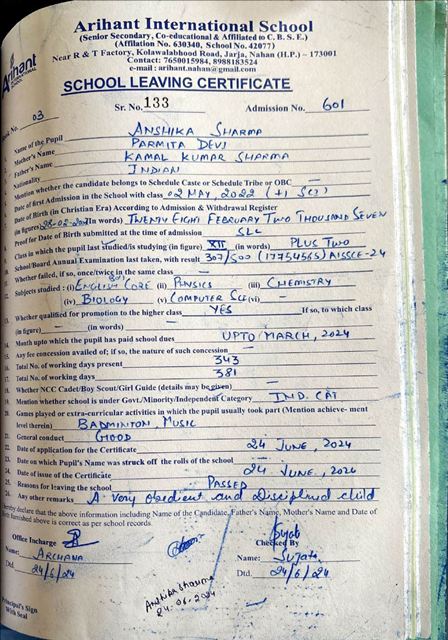 Arihant International School
(Senior Secondary, Co-educational & Affiliated to C. B. S. E.)
(Affilation No. 630340, School No. 42077)
Near R & T Factory, Kolawalabhood Road, Jarja, Nahan (H.P.) - 173001
Contact: 7650015984, 8988183524
e-mail : arihant.nahan@gmail.com
Arihant
SCHOOL LEAVING CERTIFICATE
Sr. No. 133 Admission No. 601
Book No. 03
Name of the Pupil ANSHIKA SHARMA
Mother's Name PARMITA DEVI
Father's Name KAMAL KUMAR SHARMA
Nationality INDIAN
Mention whether the candebate belongs to Schedule Caste or Schedule Tribe or OBC —
Date of first Admission in the School with class 02 MAY, 2022 (+1 Sci)
Date of Birth (in Christian Era) According to Admission & Withdrawal Register
(in figures) 28-02-2007 (In words) TWENTY EIGHT FEBRUARY TWO THOUSAND SEVEN
Proof for Date of Birth submitted at the time of admission SLC
Class in which the pupil last studied/is studying (in figure) XII (in words) PLUS TWO
School/Board Annual Examination last taken, with result 307/500 (17754565) AISSCE-24
Whether failed, if so, once/twice in the same class —
Subjects studied : (i) ENGLISH CORE (ii) PHYSICS (iii) CHEMISTRY
(iv) BIOLOGY (v) COMPUTER SCE (vi) —
Whether qualified for promotion to the higher class YES If so, to which class
(in figure) — (in words) —
Month upto which the pupil has paid school dues UPTO MARCH, 2024
Any fee concession availed of; if so, the nature of such concession —
Total No. of working days present 343
Total No. of working days 381
Whether NCC Cadet/Boy Scout/Girl Guide (details may be given) —
Mention whether school is under Govt./Minority/Independent Category IND. CAT
Games played or extra-curricular activities in which the pupil usually took part (Mention achieve- ment
level therein) BADMINTON, MUSIC
General conduct GOOD
Date of application for the Certificate 24 JUNE, 2024
Date on which Pupil's Name was struck off the rolls of the school —
Date of issue of the Certificate 24 JUNE, 2024
Reasons for leaving the school PASSED
Any other remarks A very obedient and Disciplined child
hereby declare that the above information including Name of the Candidate, Father's Name, Mother's Name and Date of
Birth furnished above is correct as per school records.
Office Incharge Checked By
Name: ARCHANA Name: Sujata
Dtd. 24/6/24 Dtd. 24/6/24
Anshika Sharma
24-06-2024
Principal's Sign
With Seal